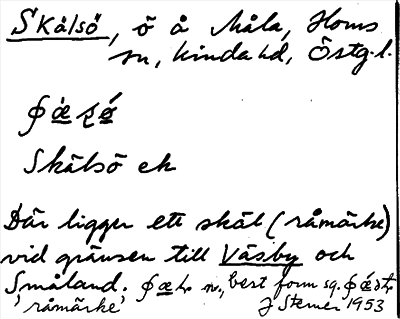 Skälsö, ö å Måla, Horns
sn, Kinda hd, Östg. l.
Skälsö ek
Där ligger ett skäl (råmärke)
vid gränsen till Väsby och
Småland. n., best form sg.
'råmärke' J Sterner 1953